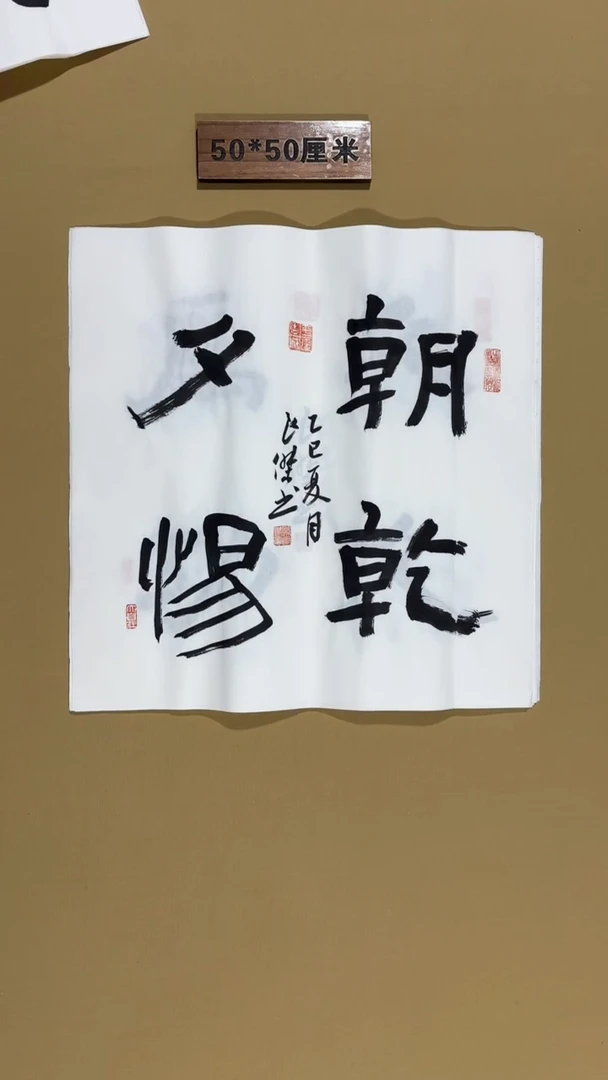 50*50厘米
朝乾
夕惕
乙巳夏月
良傑书